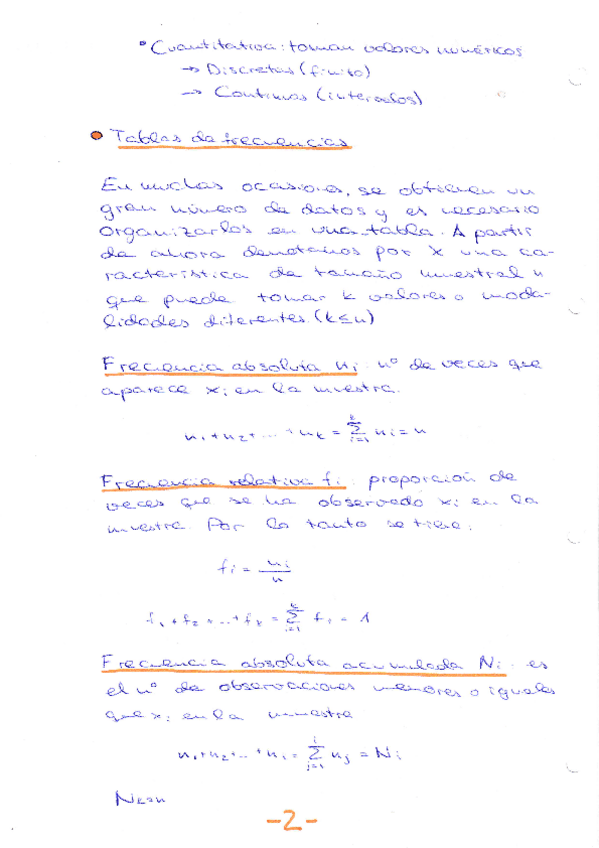 • Cuantitativa: toman valores numéricos
→ Discretas (finito)
→ Continuas (intervalos)
• Tablas de frecuencias
En muchas ocasiones, se obtienen un
gran número de datos y es necesario
organizarlos en una tabla. A partir
de ahora denotamos por X una ca-
racterística de tamaño muestral n
que puede tomar k valores o moda-
lidades diferentes (k≤n)
Frecuencia absoluta ni: nº de veces que
aparece xi en la muestra.
n1+n2+...+nk = ∑(i=1, k) ni = n
Frecuencia relativa fi: proporción de
veces que se ha observado xi en la
muestra. Por lo tanto se tiene:
fi = ni/n
f1+f2+...+fk = ∑(i=1, k) fi = 1
Frecuencia absoluta acumulada Ni: es
el nº de observaciones menores o iguales
que xi en la muestra
n1+n2+...+ni = ∑(j=1, i) nj = Ni
Nk=n
-2-